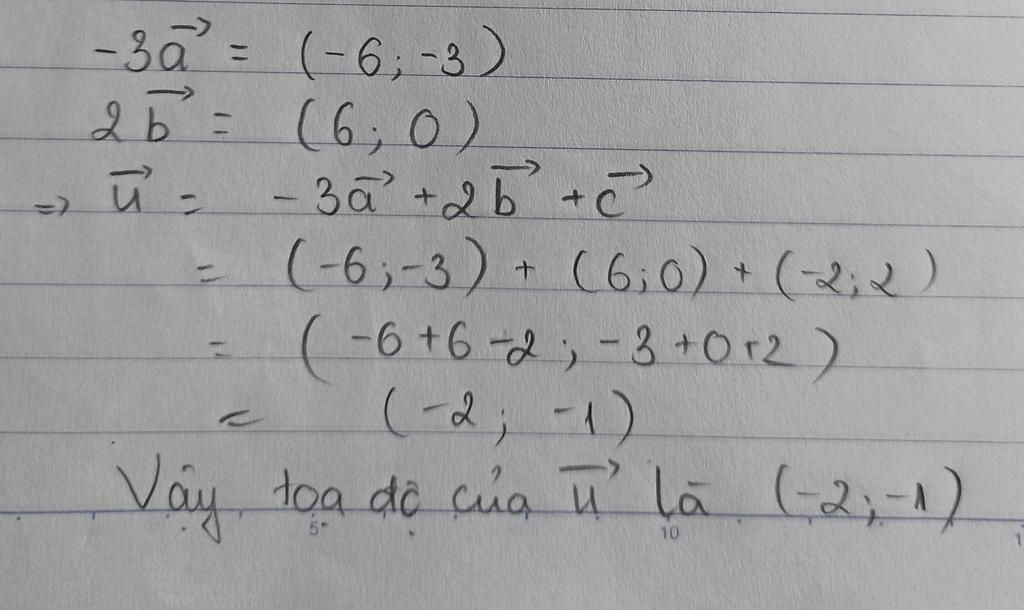 -3a⃗ = (-6; -3)
2b⃗ = (6; 0)
⇒ u⃗ = -3a⃗ + 2b⃗ + c⃗
= (-6; -3) + (6; 0) + (-2; 2)
= (-6 + 6 - 2; -3 + 0 + 2)
= (-2; -1)
Vậy tọa độ của u⃗ là (-2; -1)
5 10 1